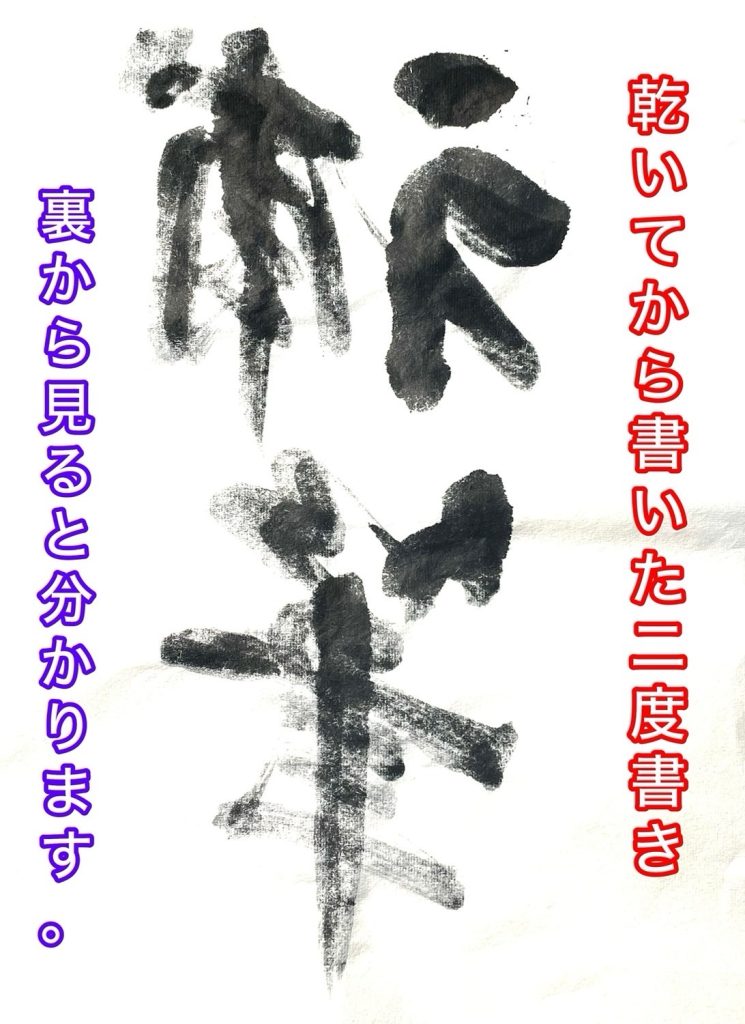 乾いてから書いた二度書き
補筆
裏から見ると分かります。